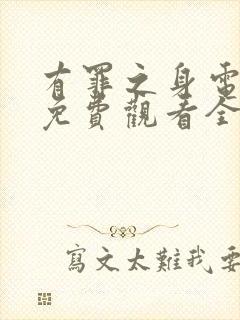 有罪之身電
免費觀看全
寫文太難我要